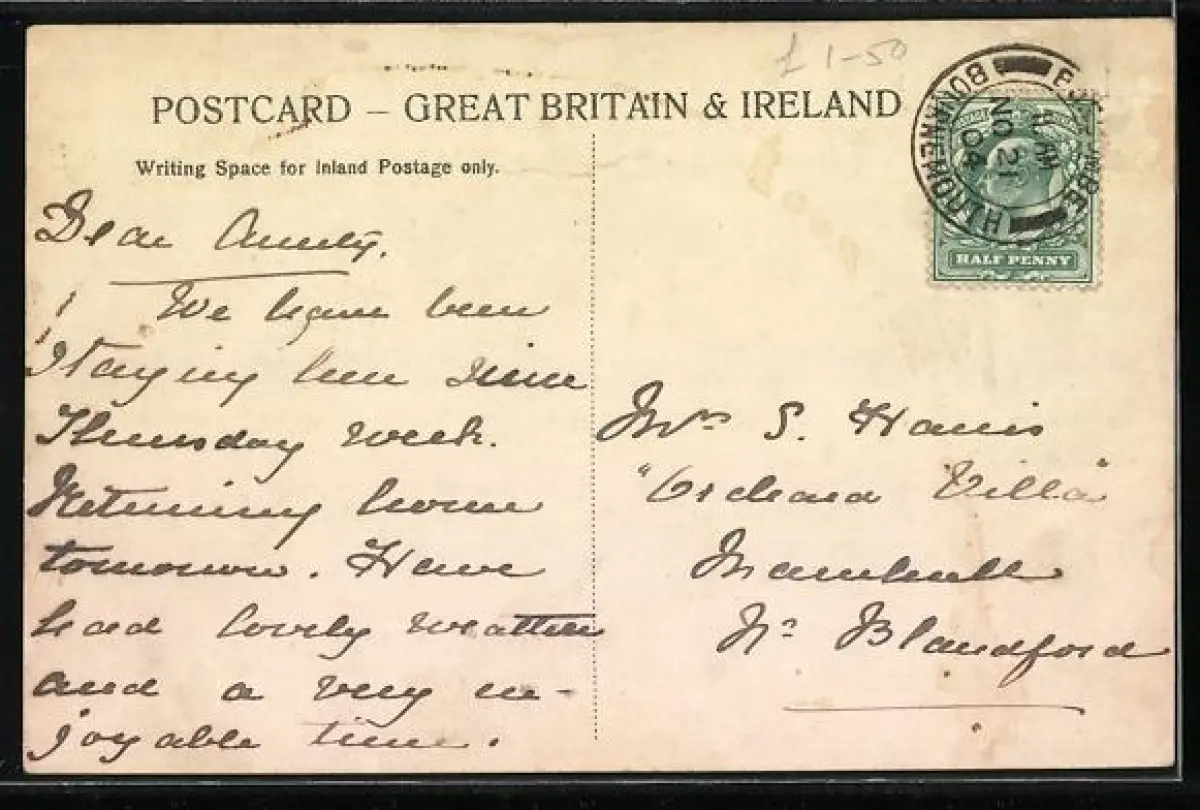 £1-50
POSTCARD – GREAT BRITAIN & IRELAND
Writing Space for Inland Postage only.
BOURNEMOUTH
11 AM
NO 21
04
HALF PENNY
Dear Aunty,
We have been
staying here since
Thursday week.
Returning home
tomorrow. Have
had lovely weather
and a very en-
joyable time.
Mrs S. Harris
"Orchard Villa"
Marnhull
Nr Blandford